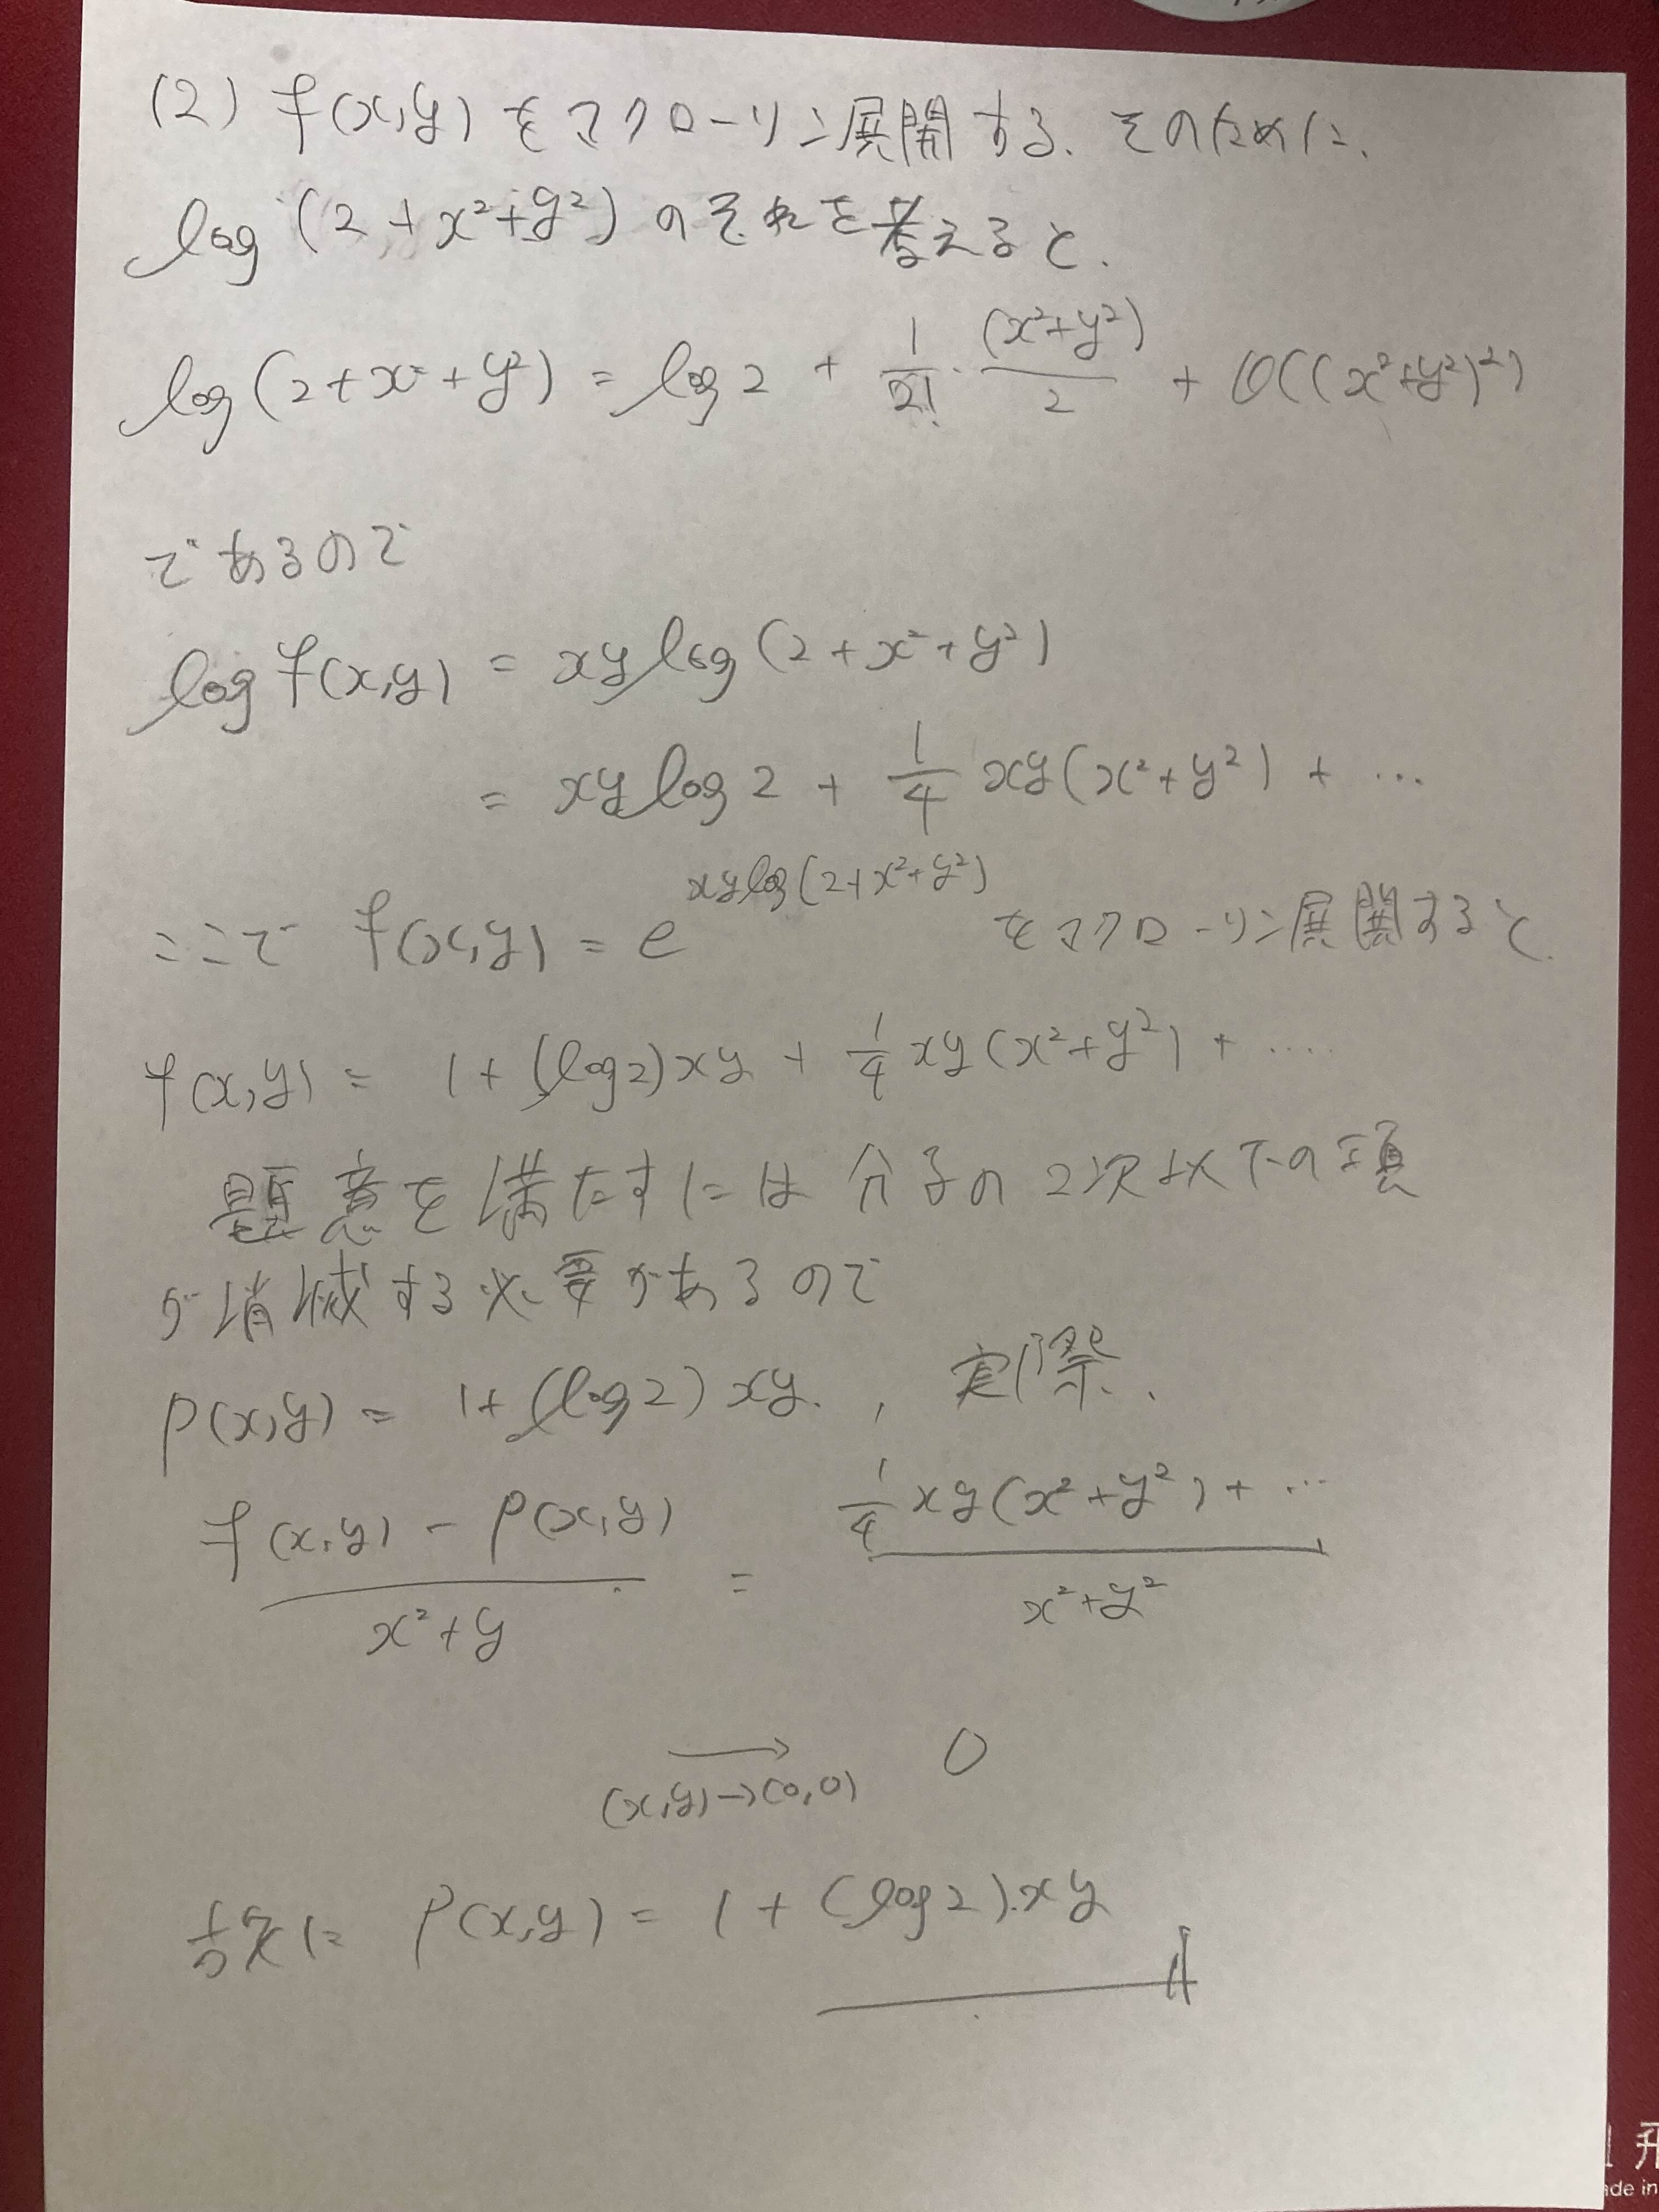 (2) f(x,y) をマクローリン展開する. そのために、
log (2+x²+y²) のそれを考えると.
log(2+x²+y²) = log2 + 1/2! · (x²+y²)/2 + O((x²+y²)²)
であるので
log f(x,y) = xy log(2+x²+y²)
= xy log 2 + 1/4 xy(x²+y²) + ...
ここで f(x,y) = e^{xy log(2+x²+y²)} をマクローリン展開すると.
f(x,y) = 1 + (log2)xy + 1/4 xy(x²+y²) + ....
題意を満たすには分子の2次以下の項
が消滅する必要があるので
P(x,y) = 1+(log2)xy. , 実際、
(f(x,y) - P(x,y))/(x²+y) = (1/4 xy(x²+y²)+...)/(x²+y²)
→ 0
(x,y)→(0,0)
故に P(x,y) = 1 + (log2).xy
升
ade in